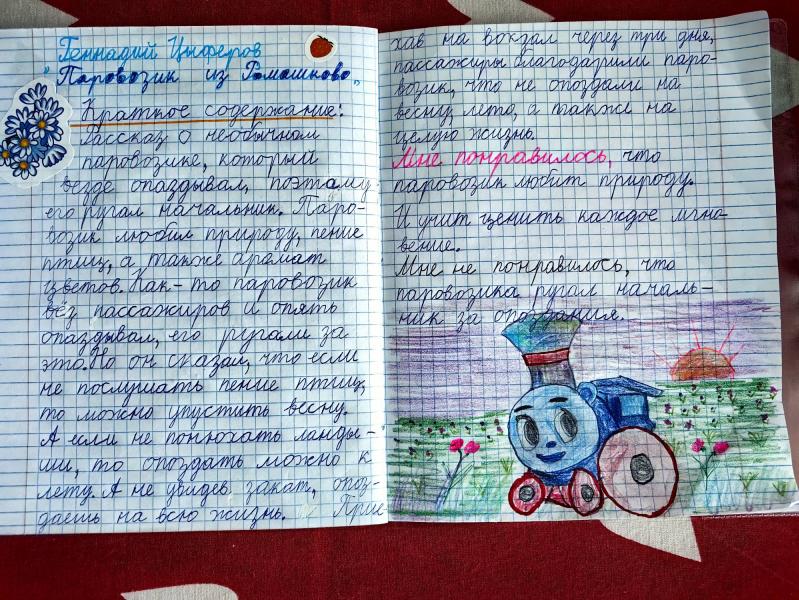 Геннадий Цыферов
"Паровозик из Ромашково"
Краткое содержание:
Рассказ о необычном
паровозике, который
везде опаздывал, поэтому
его ругал начальник. Паро-
возик любил природу, пение
птиц, а также аромат
цветов. Как-то паровозик
вёз пассажиров и опять
опаздывал, его ругали за
это. Но он сказал, что если
не послушать пение птиц,
то можно упустить весну.
А если не понюхать ланды-
ши, то опоздать можно к
лету. А не увидев закат, опоз-
даешь на всю жизнь. Прие
хав на вокзал через три дня,
пассажиры благодарили паро-
возик, что не опоздали на
весну, лето, а также на
целую жизнь.
Мне понравилось, что
паровозик любит природу.
И учит ценить каждое мгно-
вение.
Мне не понравилось, что
паровозика ругал началь-
ник за опоздания.